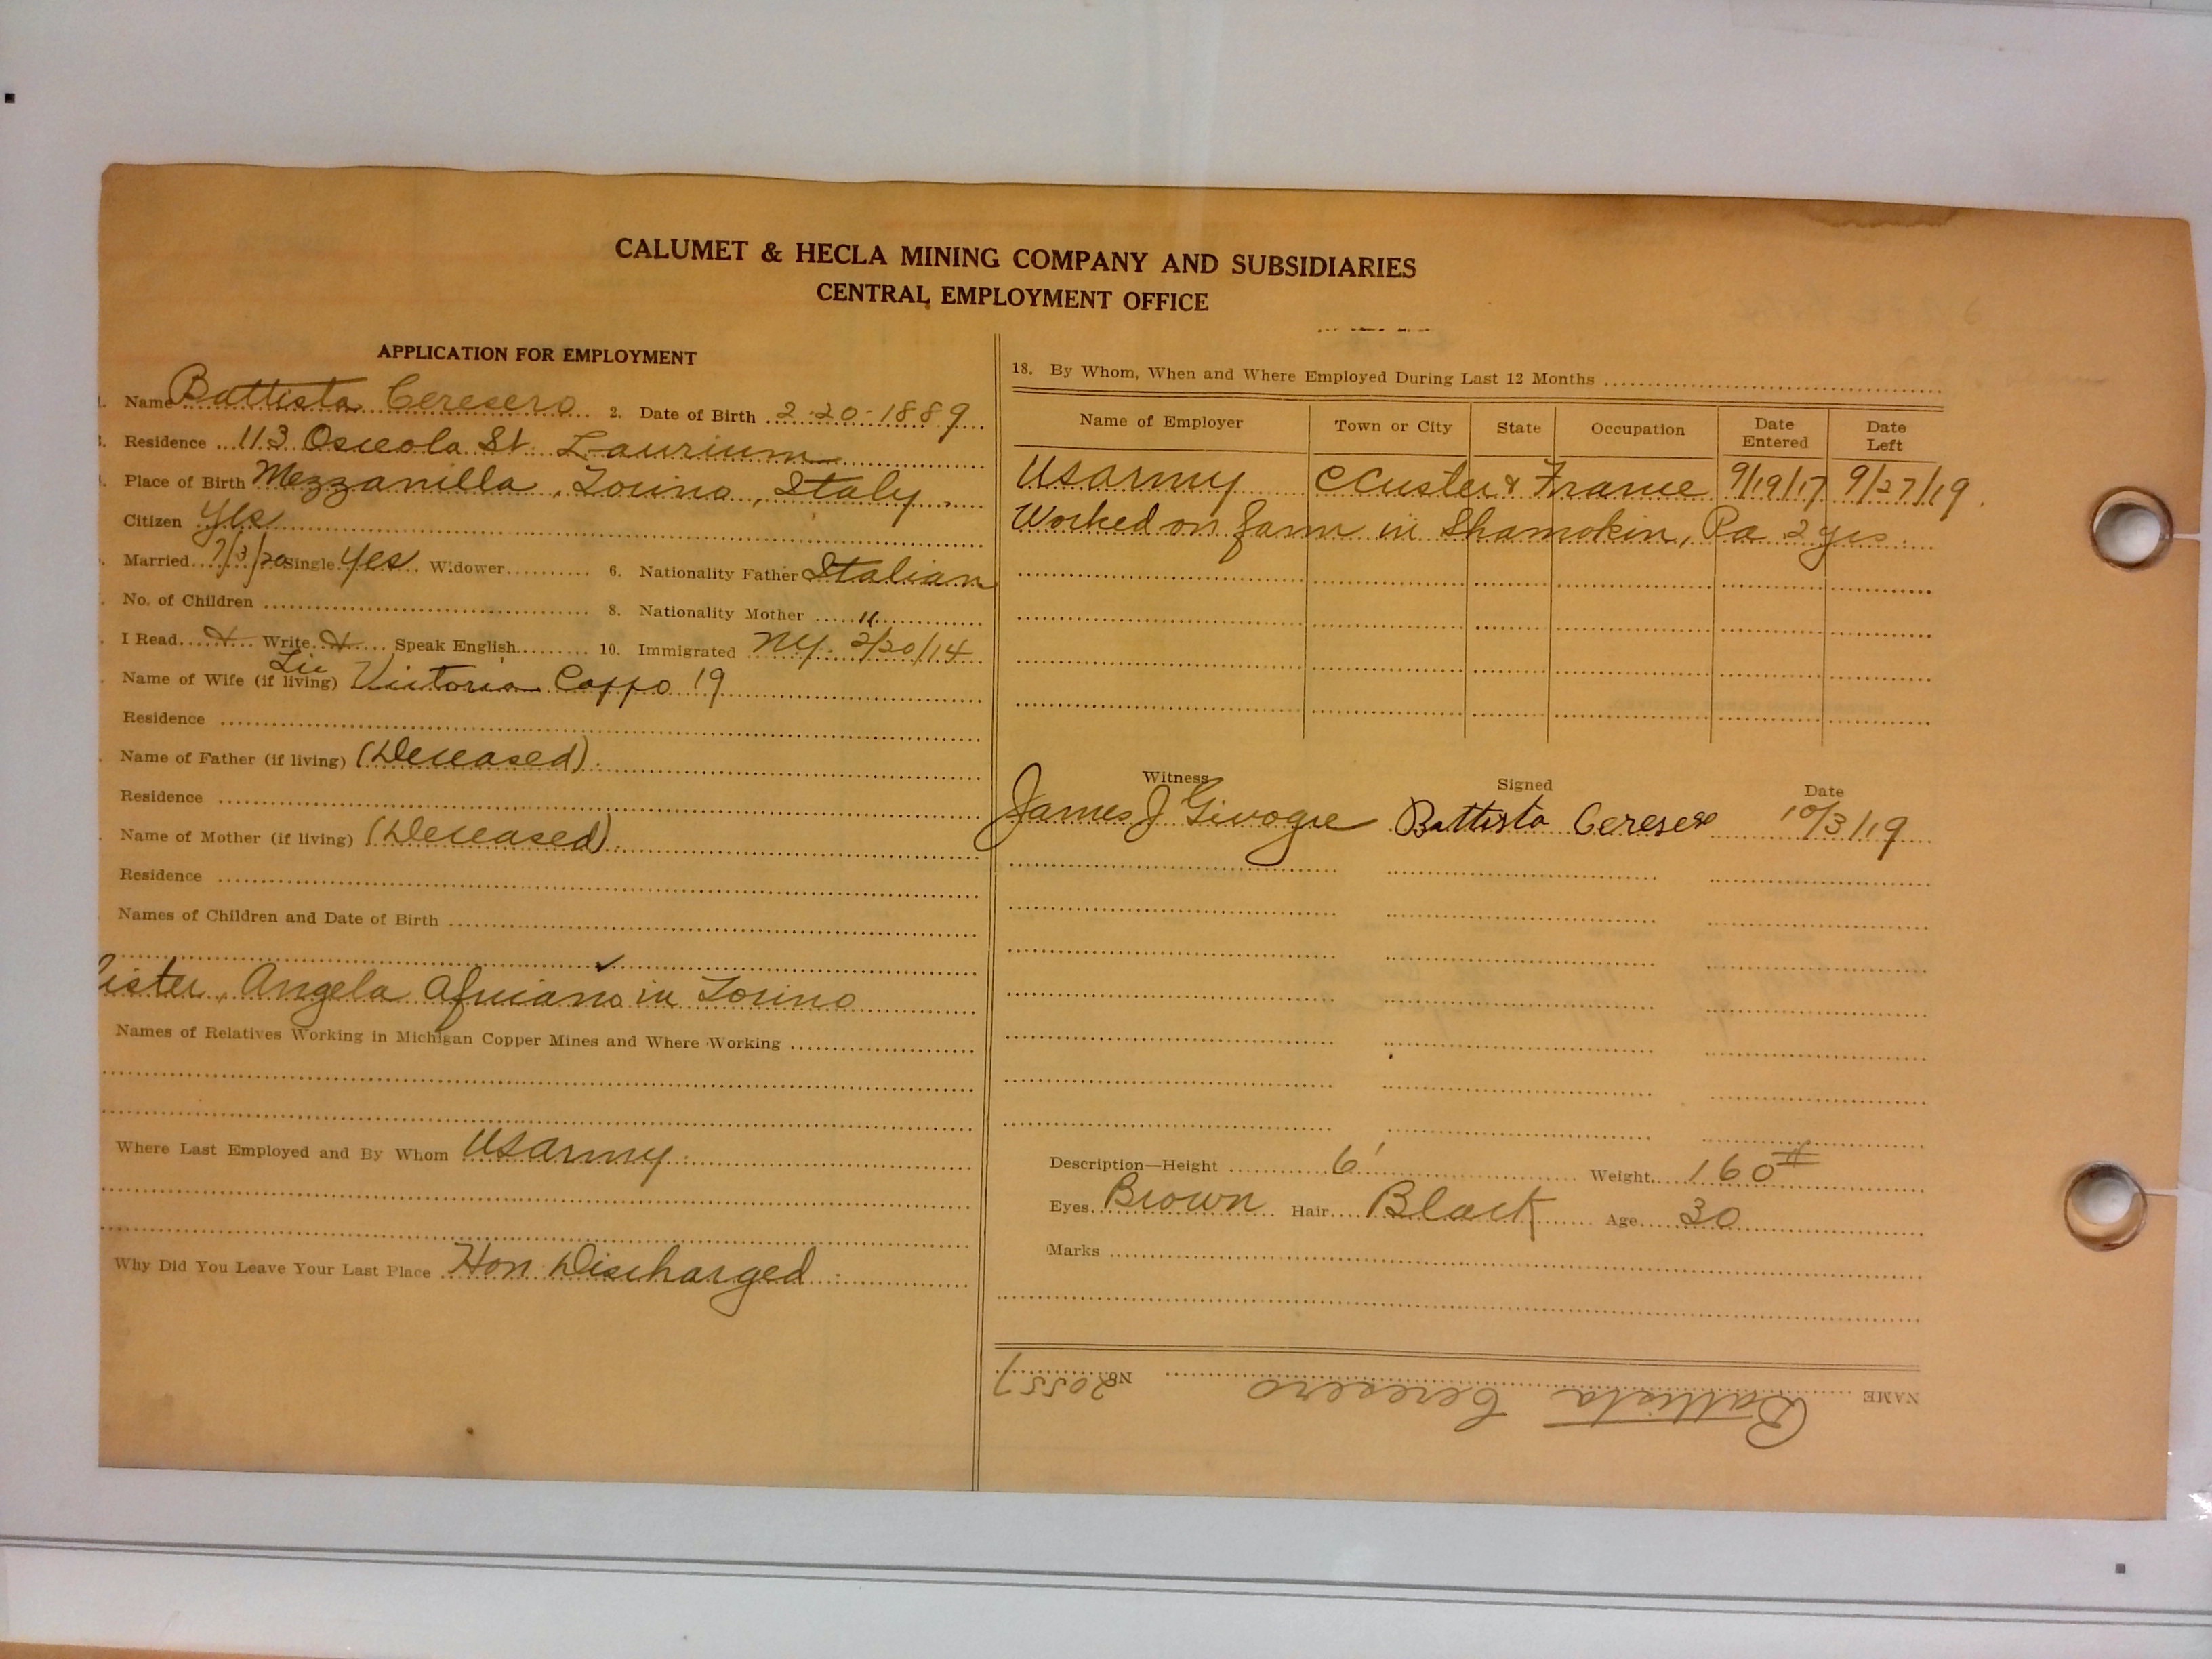 CALUMET & HECLA MINING COMPANY AND SUBSIDIARIES
CENTRAL EMPLOYMENT OFFICE
APPLICATION FOR EMPLOYMENT
Name Battista Ceresero 2. Date of Birth 2-20-1889
Residence 113 Osceola St. Laurium
Place of Birth Mezzanilla, Torino, Italy
Citizen Yes
Married 7/3/20 Single Yes Widower 6. Nationality Father Italian
No. of Children 8. Nationality Mother "
I Read X Write X Speak English 10. Immigrated NY. 2/20/14
Lic
Name of Wife (if living) Victoria Coppo 19
Residence
Name of Father (if living) (Deceased)
Residence
Name of Mother (if living) (Deceased)
Residence
Names of Children and Date of Birth
Sister, Angela in Torino
Names of Relatives Working in Michigan Copper Mines and Where Working
Where Last Employed and By Whom US Army
Why Did You Leave Your Last Place Hon Discharged
18. By Whom, When and Where Employed During Last 12 Months
Name of Employer Town or City State Occupation Date Entered Date Left
US Army C Custer & France 9/19/17 9/27/19
Worked on farm in Shamokin, Pa 2 yrs.
Witness Signed Date
James J Givogre Battista Ceresero 10/3/19
Description—Height 6' Weight 160#
Eyes Brown Hair Black Age 30
Marks
NAME Battista Ceresero No. 20557